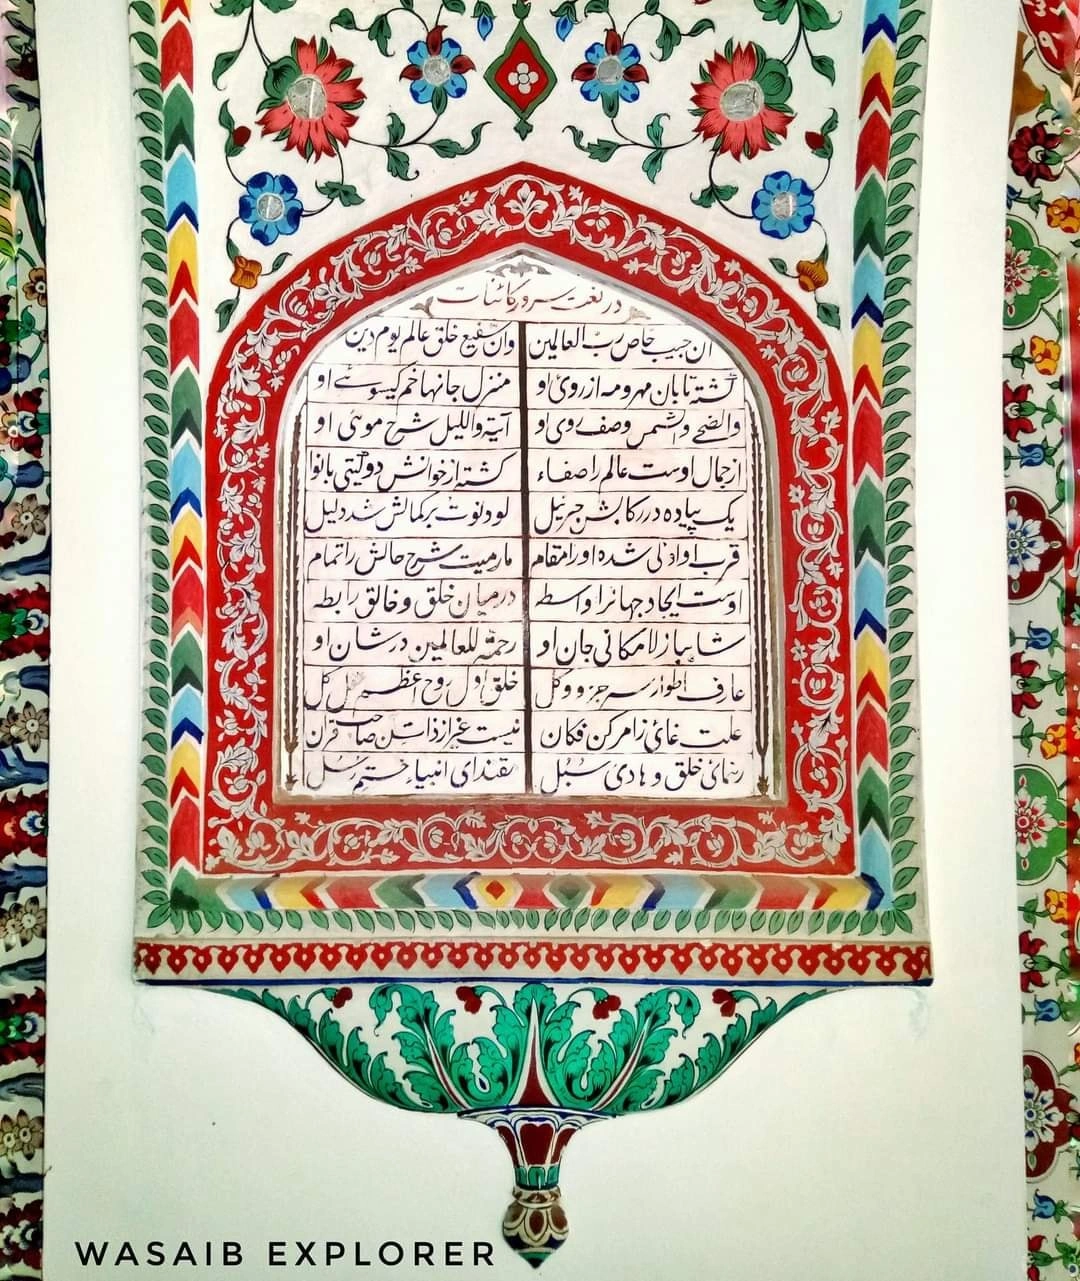 در نعت سرور کائنات
آن حبیب خاص رب العالمین وآن شفیع خلق عالم یوم دین
گشتہ تابان مہر و مہ از روئ او منزل جانہا خم گیسوئے او
والضحے والشمس وصف روی او آیۃ واللیل شرح موئی او
از جمال اوست عالم را صفاء گشتہ از خوانش دو گیتی بانوا
یک پیادہ در رکابش جبرئیل لو دنوت بر کمالش شد دلیل
قرب او ادنی شدہ او را مقام مارمیت شرح حالش را تمام
اوست ایجاد جہانرا واسطہ درمیان خلق و خالق رابطہ
شاہباز لامکانی جان او رحمۃ للعالمین در شان او
عارف اطوار سر جزو و کل خلق اول روح اعظم عقل کل
علت غائ ز امر کن فکان نیست غیر از ذات آن صاحب قران
رہنمائ خلق و ہادئ سبل مقتدای انبیاء ختم رسل
WASAIB EXPLORER